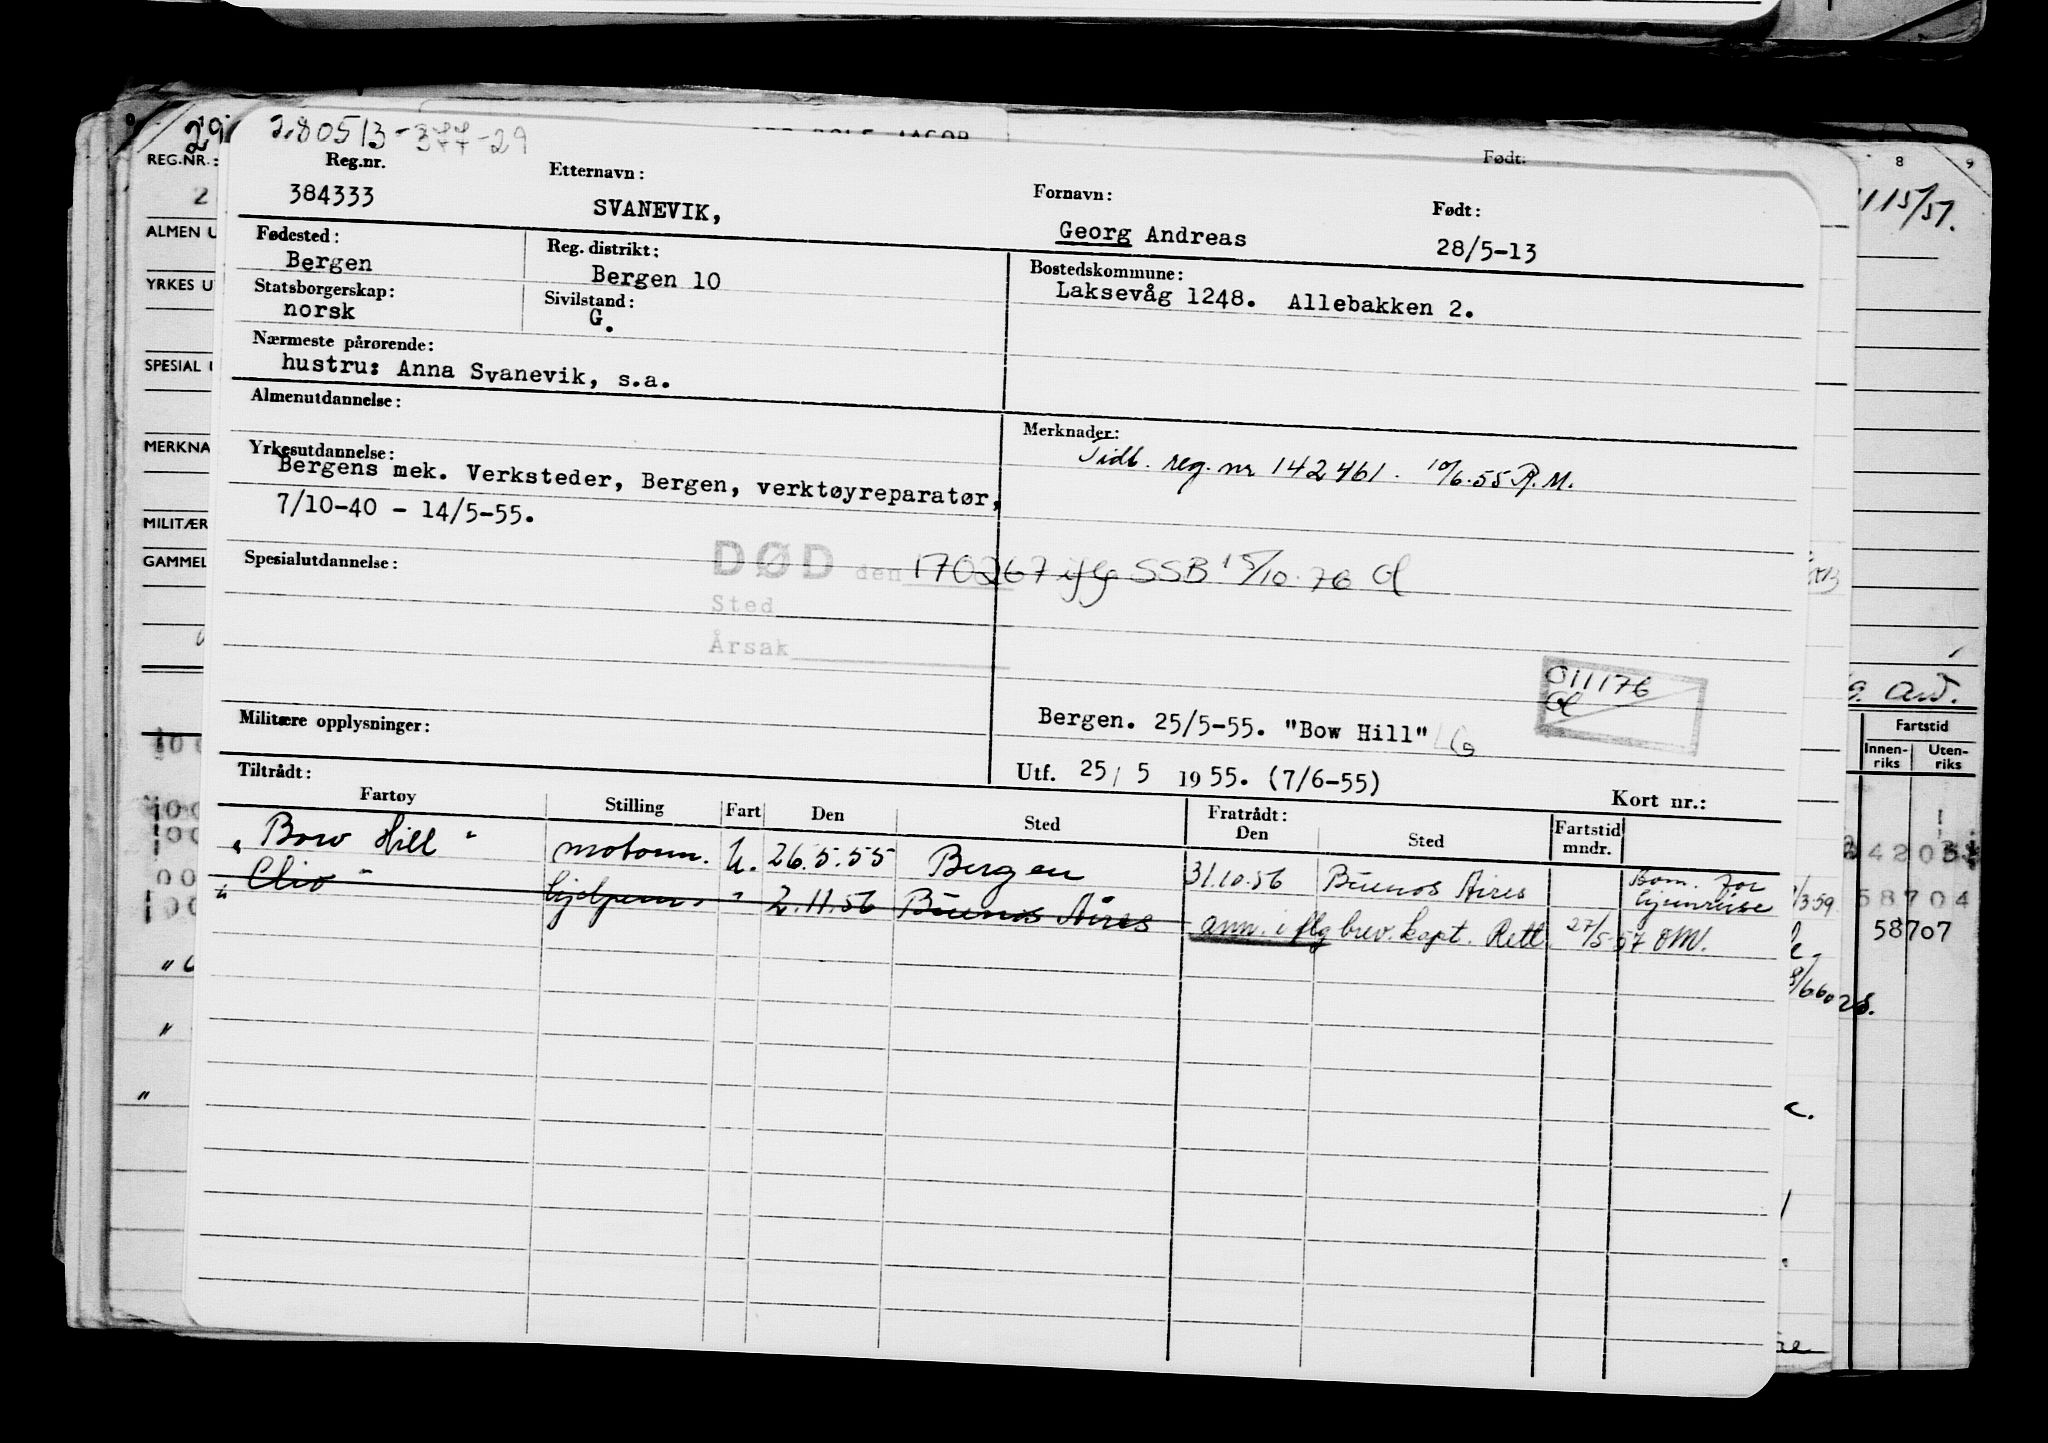 280513-377-29
Reg.nr. Etternavn: Fornavn: Født:
384333 SVANEVIK, Georg Andreas 28/5-13
Fødested: Reg. distrikt: Bostedskommune:
Bergen Bergen 10 Laksevåg 1248. Allebakken 2.
Statsborgerskap: Sivilstand:
norsk G.
Nærmeste pårørende:
hustru: Anna Svanevik, s.a.
Almenutdannelse: Merknader:
Tidl. reg. nr 142461. 10/6.55 R.M.
Yrkesutdannelse:
Bergens mek. Verksteder, Bergen, verktøyreparatør,
7/10-40 - 14/5-55.
Spesialutdannelse: DØD den 170267 iflg SSB 15/10.76 Gl
Sted
Årsak
011176
Gl
Militære opplysninger: Bergen. 25/5-55. "Bow Hill" LG
Utf. 25/5 1955. (7/6-55) Kort nr.:
Tiltrådt: Fratrådt:
Fartøy Stilling Fart Den Sted Den Sted Fartstid mndr.
"Bow Hill" motorm. U. 26.5.55 Bergen 31.10.56 Buenos Aires for hjemreise
"Clio" hjelpem. " 2.11.56 Buenos Aires ann. iflg brev. kapt. Rett. 27/5-57 OM.
REG.NR.:
ALMEN U
YRKES U
SPESIAL U
MERKNA
MILITÆR
GAMMEL
Født:
8 9
115/51.
And.
Fartstid
Innen-riks Uten-riks
58704
58707